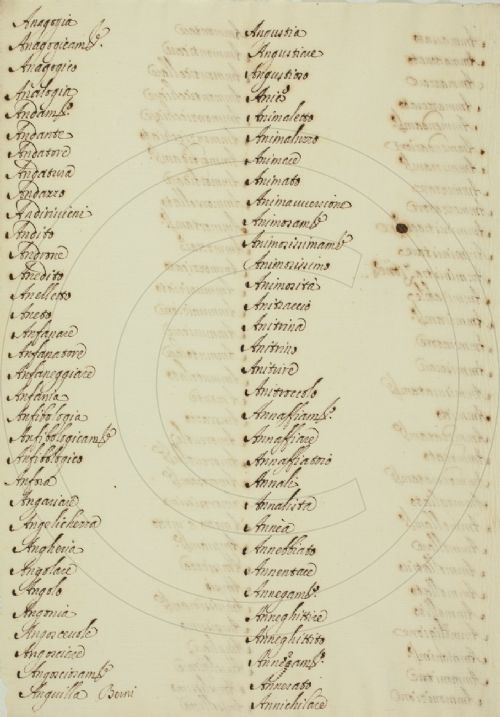 Anagogia
Anagogicam.te
Anagogico
Analogia
Andam.to
Andante
Andatore
Andatura
Andazzo
Andirivieni
Andito
Androne
Anedito
Anelletto
Aneto
Anfanare
Anfanatore
Anfaneggiare
Anfania
Anfibologia
Anfibologicam.te
Anfibologico
Anfora
Angariare
Angelichezza
Angheria
Angolare
Angolo
Angonia
Angoscevole
Angosciare
Angosciosam.te
Anguilla Berni
Angustia
Angustiare
Angustioso
Animaletto
Animaluzzo
Animare
Animato
Animavversione
Animosam.te
Animosissimam.te
Animosissimo
Animosità
Anitraccio
Anitrina
Anitrino
Anitrire
Anitroccolo
Annaffiam.to
Annaffiare
Annaffiatoio
Annali
Annalista
Annebbiato
Annegam.to
Anneghittire
Anneghittito
Annerato
Annichilare